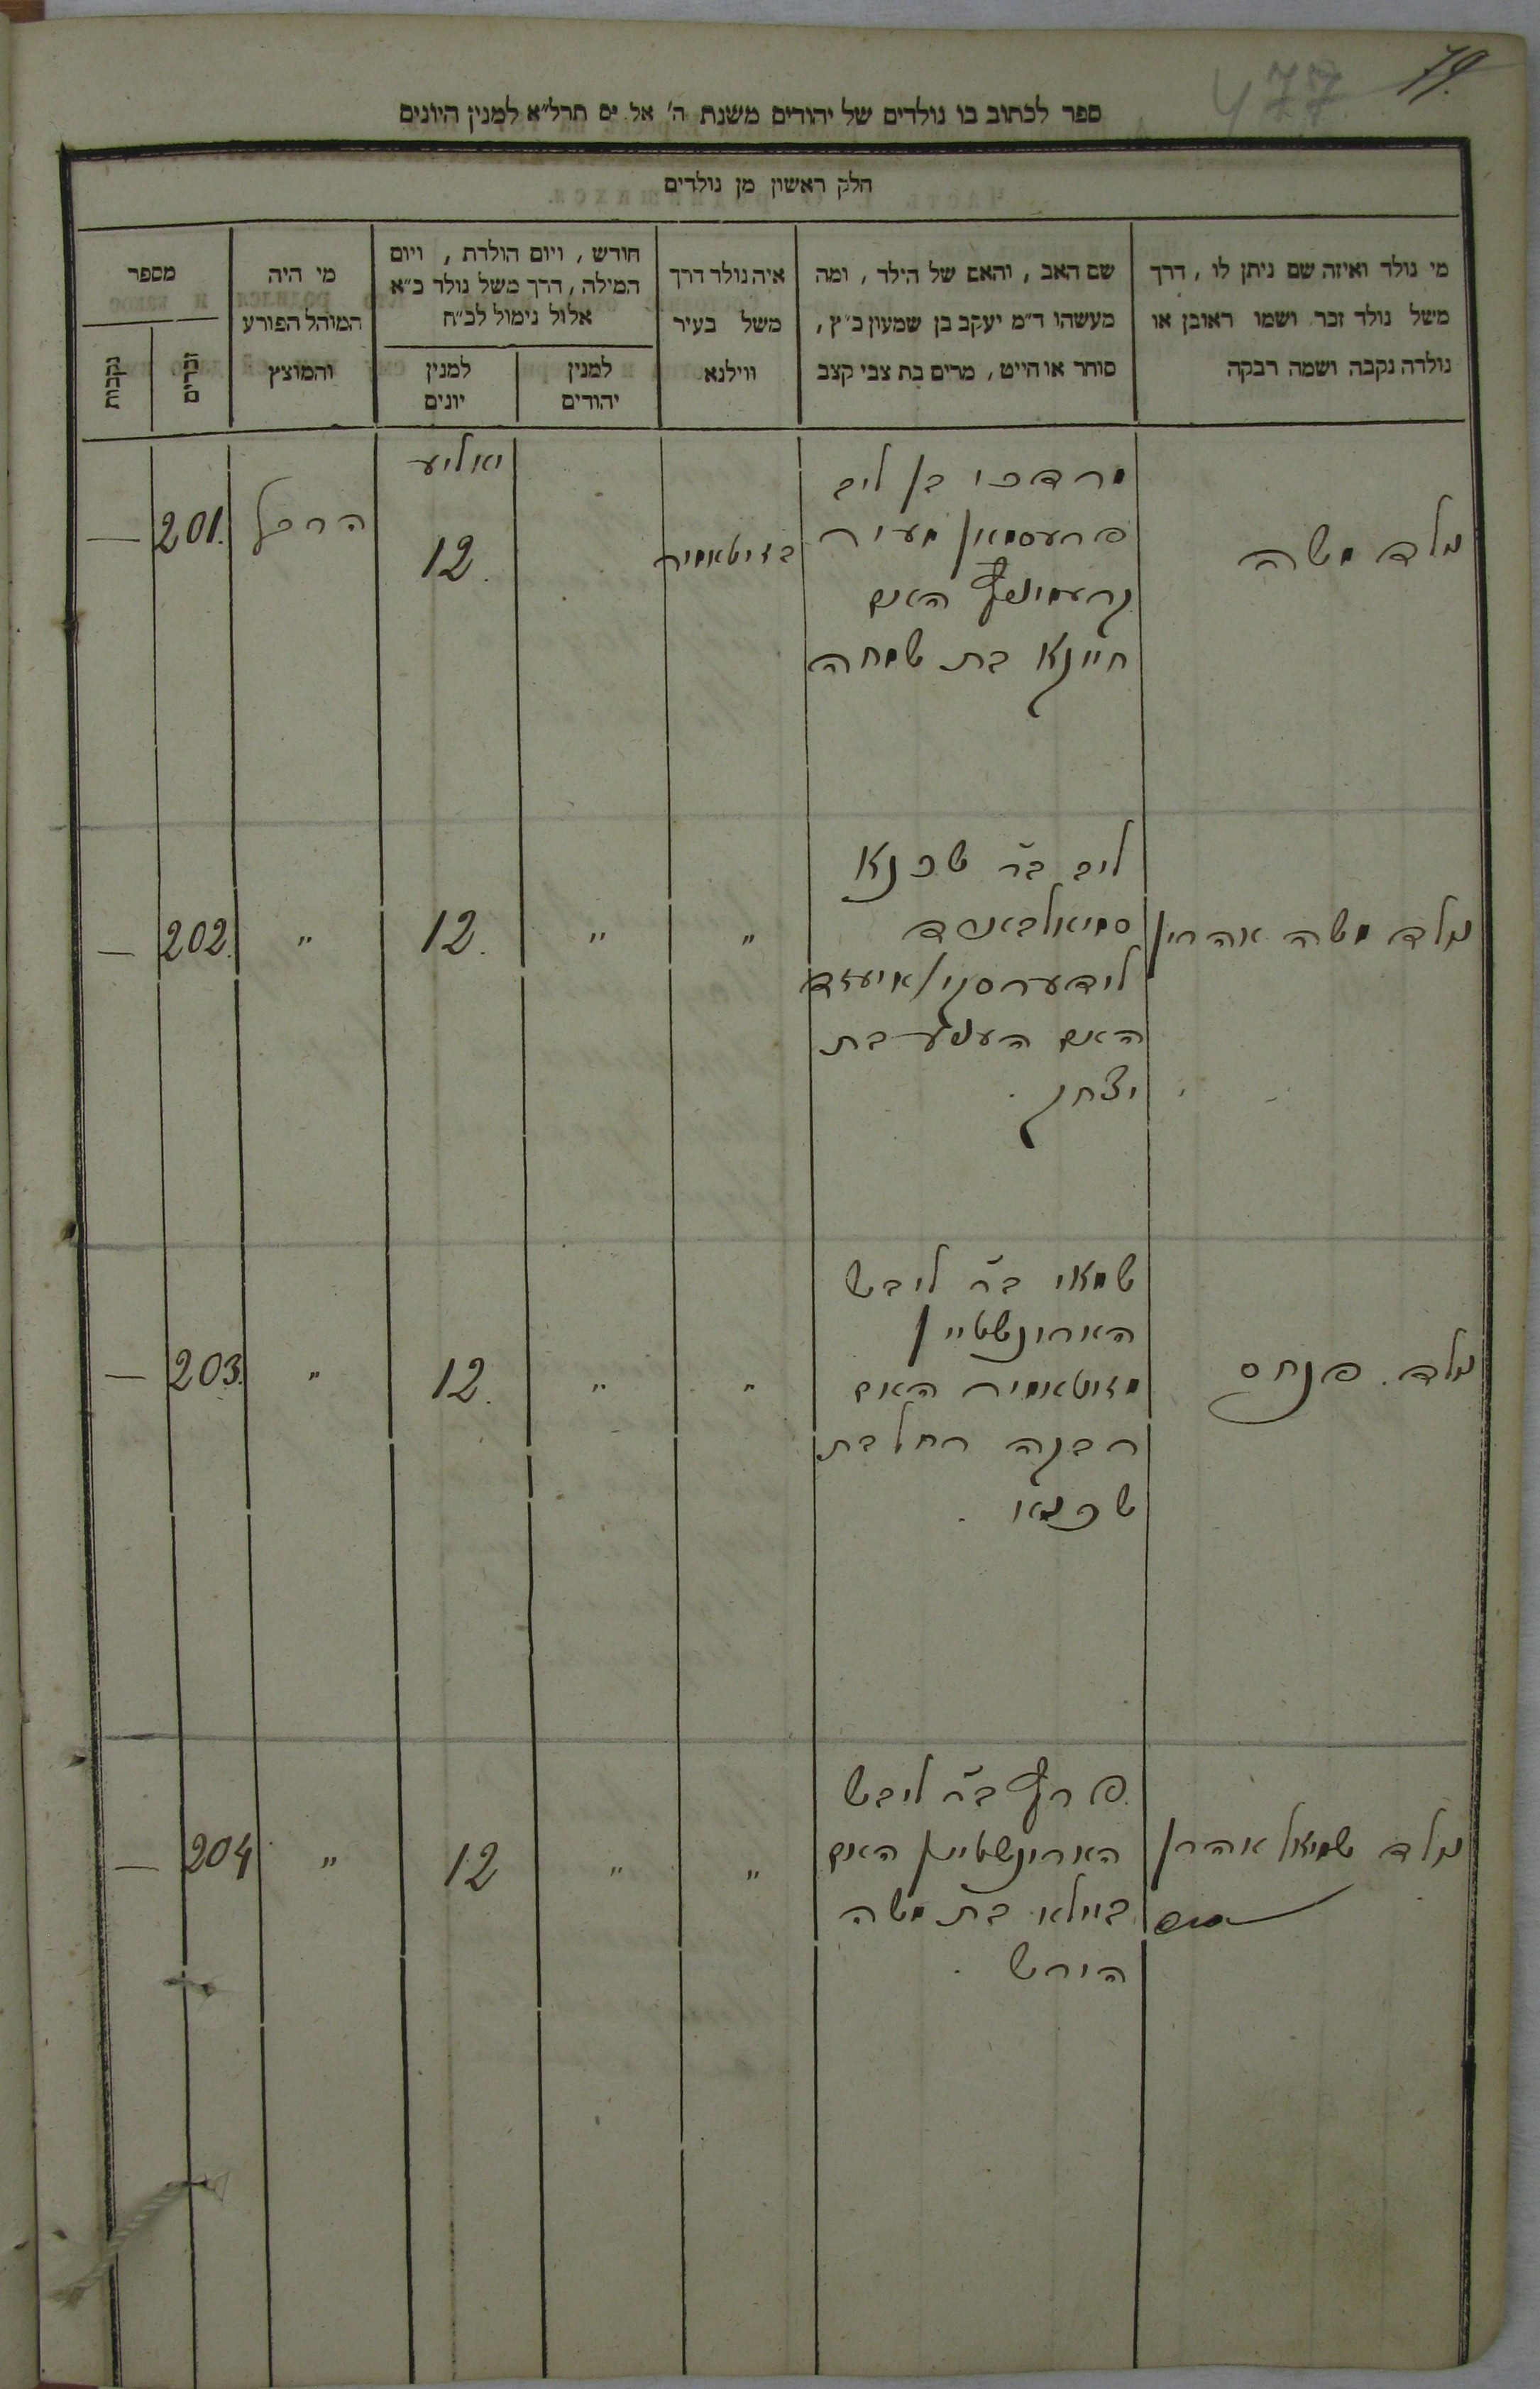 79.
477
ספר לכתוב בו נולדים של יהודים משנת ה' אל. ים תרל״א למנין היונים
חלק ראשון מן נולדים
מי נולד ואיזה שם ניתן לו, דרך
משל נולד זכר ושמו ראובן או
נולדה נקבה ושמה רבקה
שם האב, והאם של הילד, ומה
מעשהו ד״מ יעקב בן שמעון כ״ץ,
סוחר או חייט, מרים בת צבי קצב
איה נולד דרך
משל בעיר
ווילנא
חודש, ויום הולדת, ויום
המילה, דרך משל נולד כ״א
אלול נימול לכ״ח
למנין
יהודים
למנין
יונים
מי היה
המוהל הפורע
והמוצץ
מספר
זכרים
נקבות
נולד משה
מרדכי בן ליב
מעיר
האם
חיינא בת שמחה
בזיטאמיר
יאוליע
12.
201.
—
נולד משה אהרין
ליב בר שכנא
האם בת
יצחק.
"
"
12.
"
202.
—
נולד. פנחס
שמאי בר ליבש
הארינשטיין
מזיטאמיר האם
רחל בת
שכנא.
"
"
12.
"
203.
—
נולד שמואל אהרן
בר ליבש
הארינשטיין האם
ביילא בת משה
הירש.
"
"
12
"
204
—